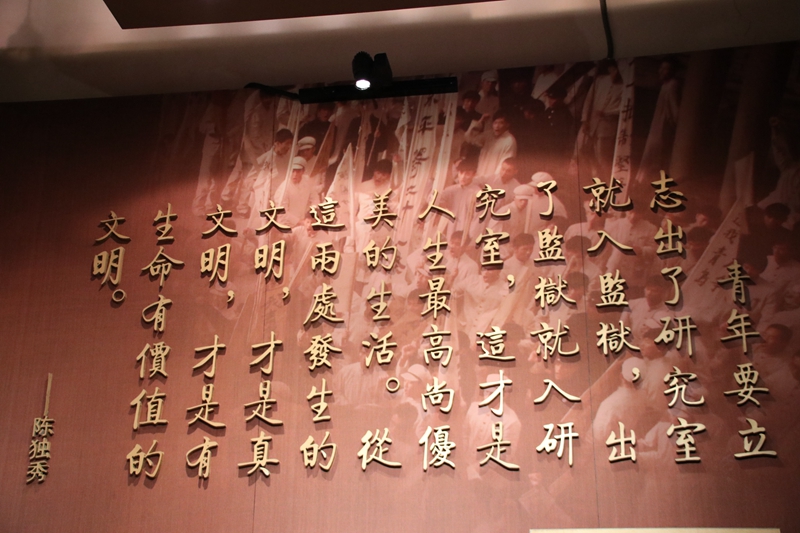 青年要立
志出了研究室
就入監獄，出
了監獄就入研
究室，這才是
人生最高尚優
美的生活。從
這兩處發生的
文明，才是真
文明，才是有
生命有價值的
文明。
——陈独秀